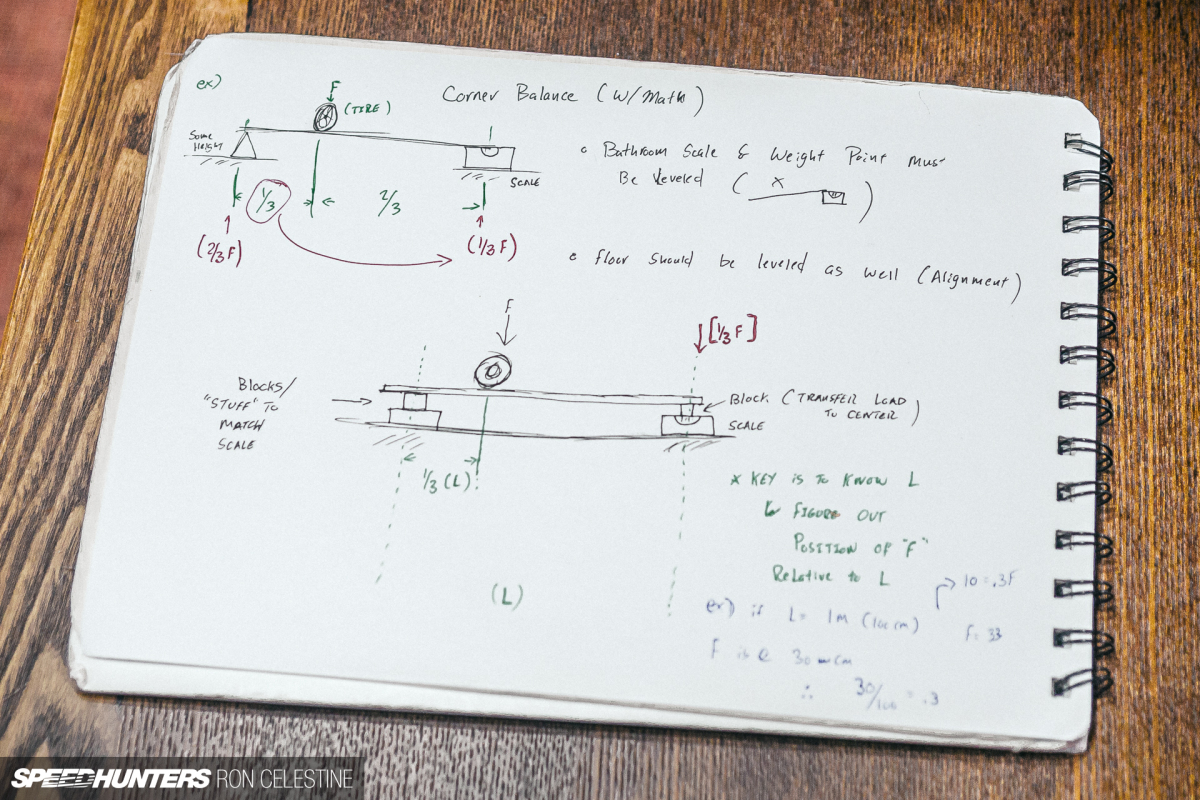 ex)
Corner Balance (W/ Maths)
F
(TIRE)
Some
Height
SCALE
1/3
2/3
(2/3 F)
(1/3 F)
• Bathroom Scale & Weight Point Must
Be Leveled ( X )
• Floor Should be leveled as well (Alignment)
F
[1/3 F]
Blocks/
"STUFF" TO
MATCH
SCALE
BLOCK (TRANSFER LOAD
TO CENTER)
SCALE
1/3 (L)
(L)
* KEY IS TO KNOW L
↳ FIGURE OUT
POSITION OF "F"
Relative to L
ex) if L= 1m (100cm)
→ 10 = .3F
F = 33
F is @ 30 cm
∴ 30/100 = .3
SPEEDHUNTERS RON CELESTINE